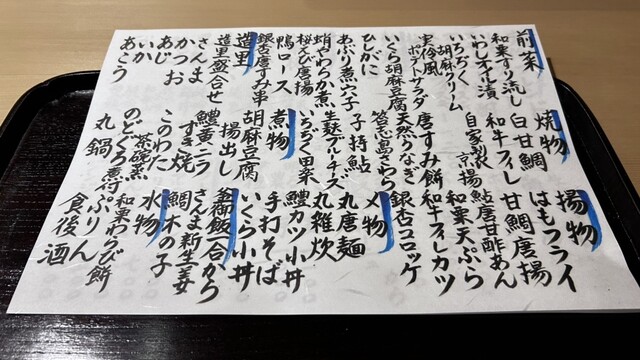 前菜
和栗すり流し
いわしオイル漬
いちぢく
胡麻クリーム
ポテトサラダ
いくら胡麻豆腐
ひしがに
あぶり煮穴子
蛸やわらか煮
桜えび唐揚
鴨ロース
銀杏唐すみ串
造里
造里盛合せ
さんま
かつお
あじ
いか
あこう
焼物
白甘鯛
和牛フィレ
自家製京揚
唐すみ餅
天然うなぎ
さわら
子持鮎
生麩
いちぢく田楽
煮物
胡麻豆腐
揚出し
すき焼
このわた
茶碗蒸
のどぐろ煮付
丸鍋
揚物
はもフライ
甘鯛唐揚
鮎唐甘酢あん
和栗天ぷら
和牛フィレカツ
銀杏コロッケ
〆物
丸唐麺
丸雑炊
鱧カツ小丼
手打そば
いくら小丼
釜御飯二合から
さんま新生姜
鯛木の子
水物
和栗わらび餅
ぷりん
食後酒